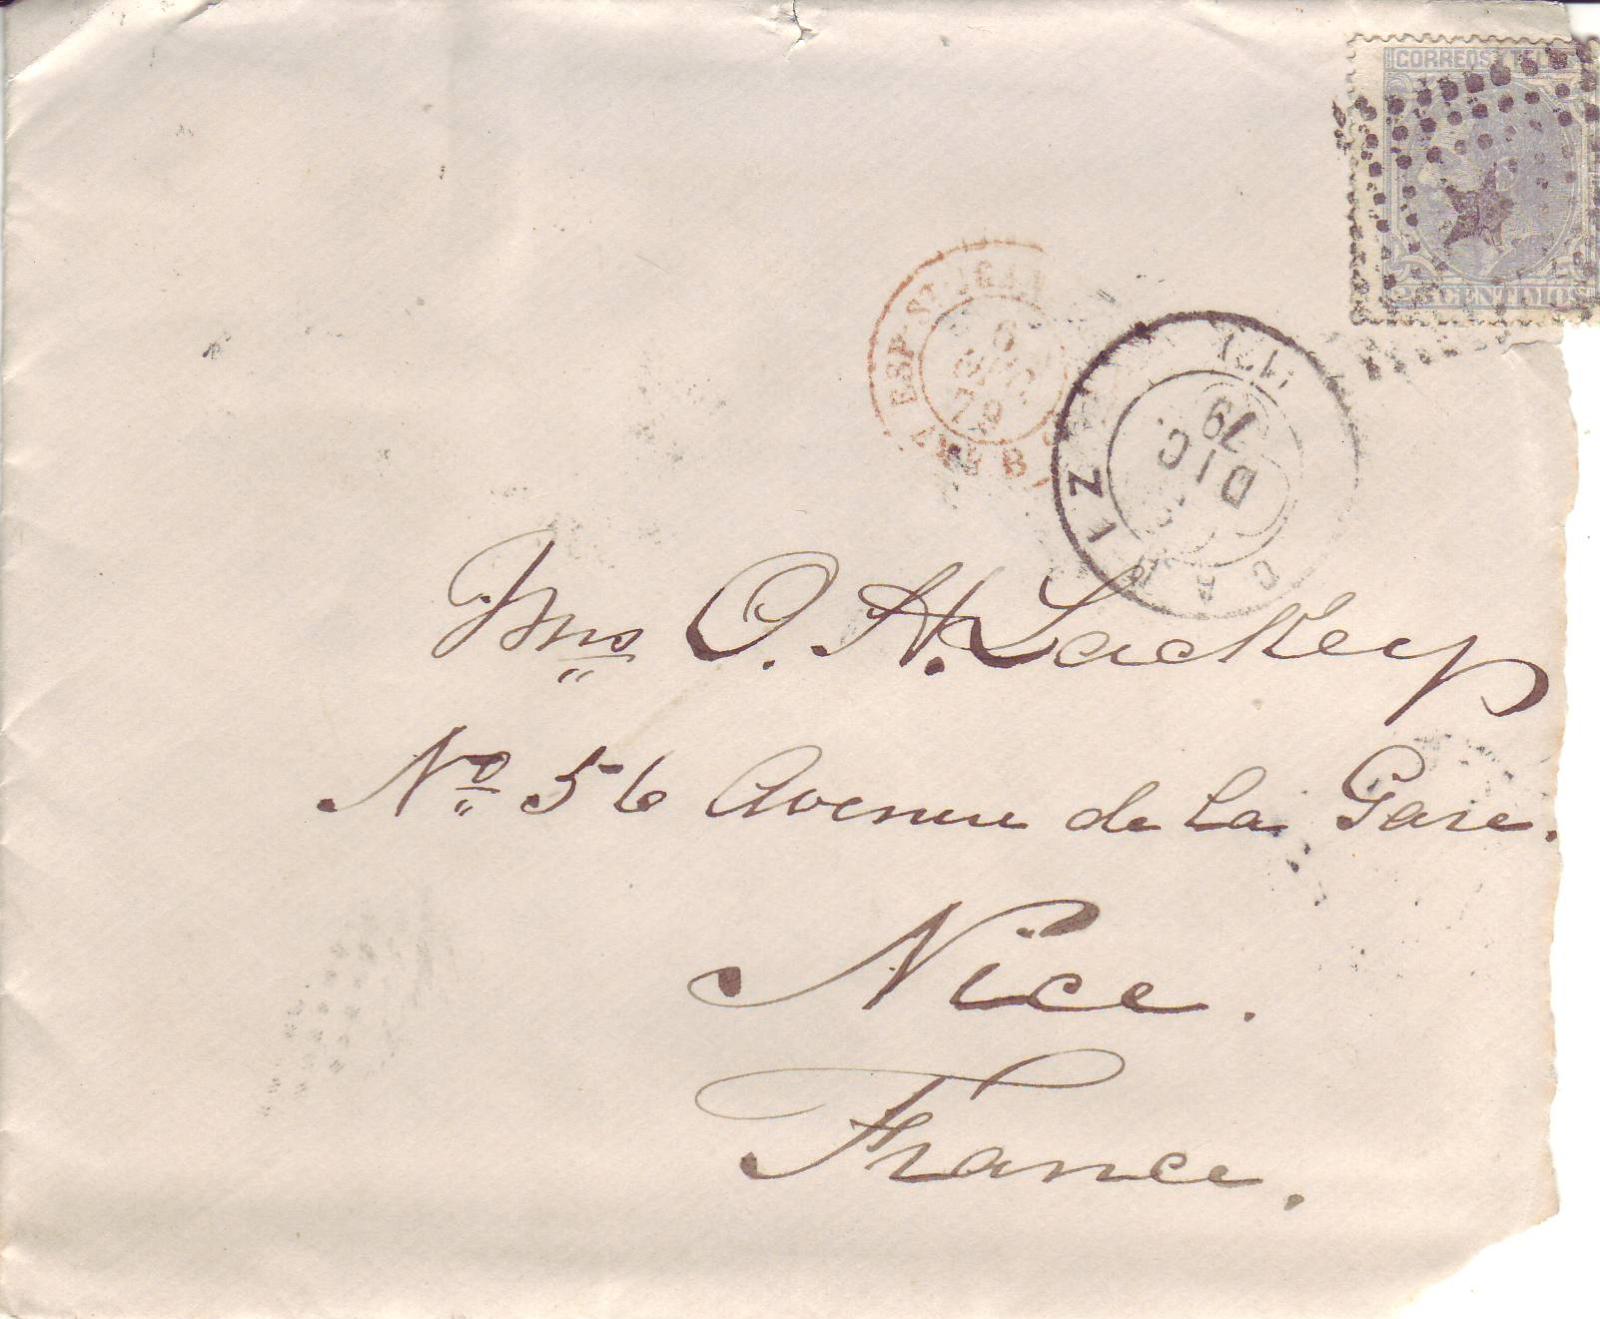 CORREOS Y TEL
25 CENTIMOS
ESP. ST JEAN
6
DEC
79
CADIZ
DIC
79
Mrs O. H. Lackey
No 56 Avenue de la Gare.
Nice.
France.